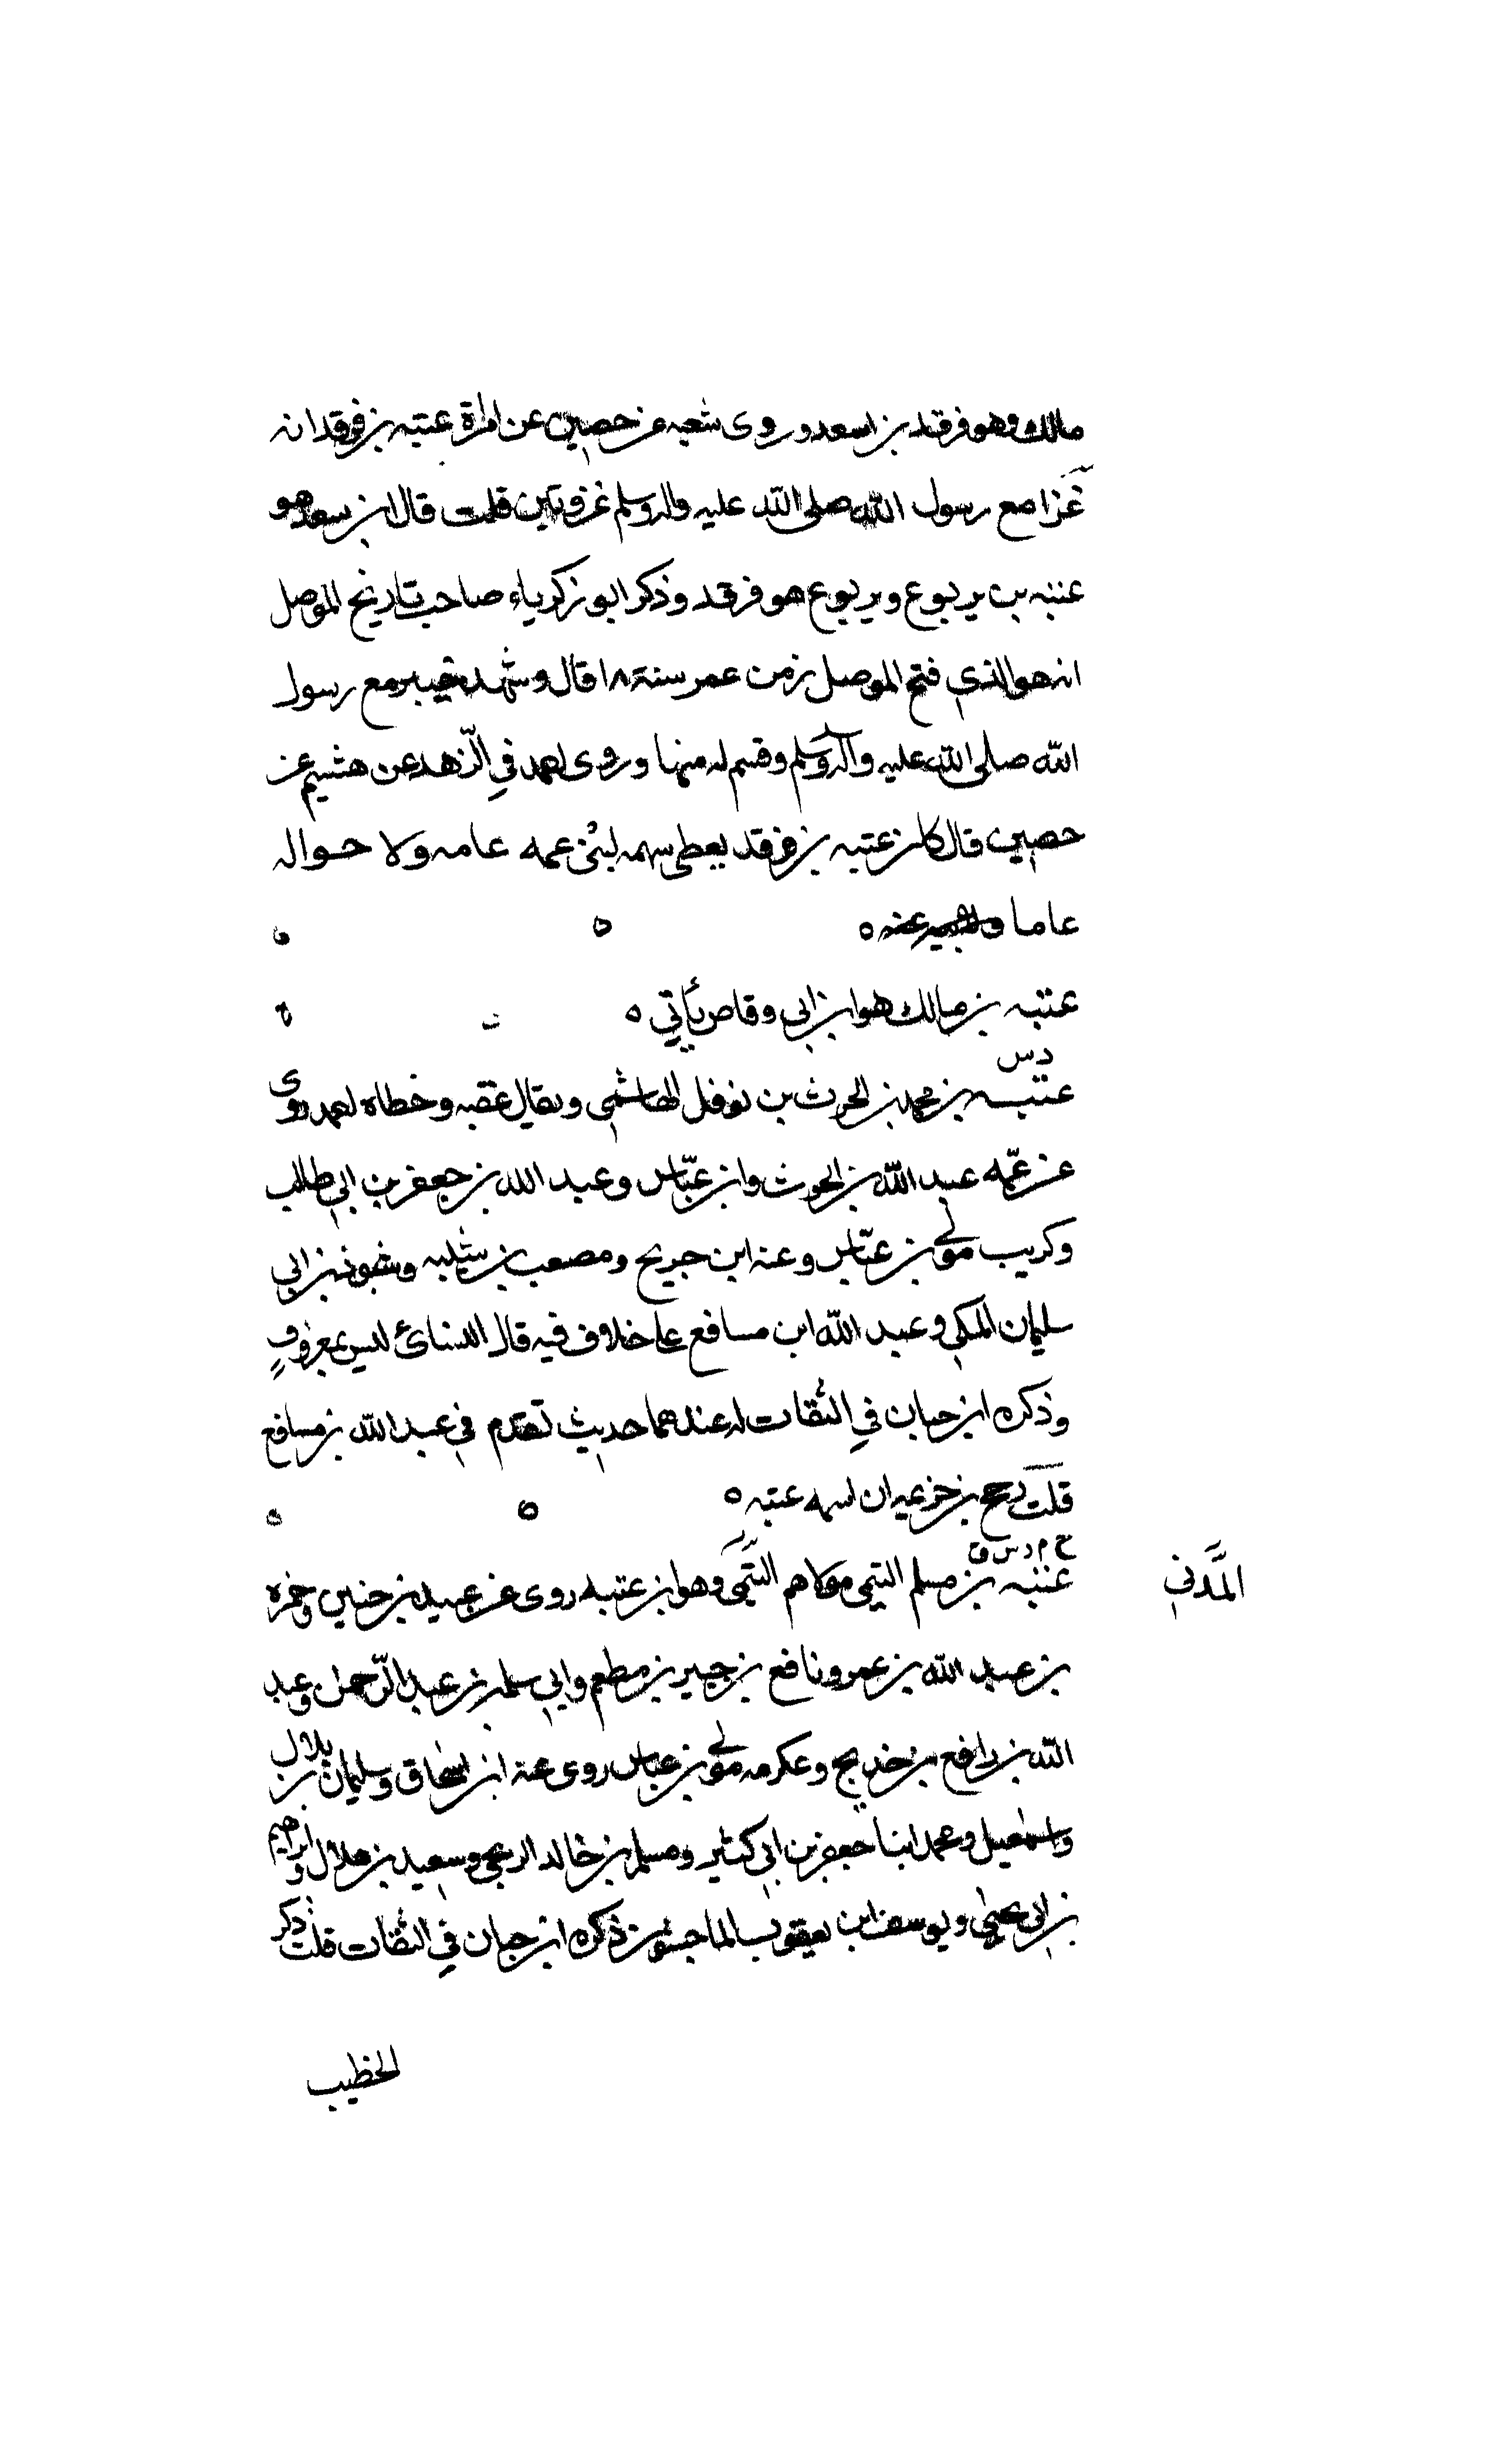 مالك وهو فرقد بن اسعد وروى شعبه عن حصين عن امراة عتبه بن فرقد انه
غزا مع رسول الله صلى الله عليه واله وسلم غزوتين قلت قال ابن سعد هو
عتبه بن يربوع ويربوع هو فرقد وذكر ابو زكرياء صاحب تاريخ الموصل
انه هو الذي فتح الموصل زمن عمر سنة ١٨ قال وشهد خيبر مع رسول
الله صلى الله عليه وآله وسلم وقسم له منها وروى احمد في الزهد عن هشيم عن
حصين قال كان عتبه بن فرقد يعطى سهمه لبنى عمه عامه ولا حواله
عاما
عتبه بن مالك هو ابن ابي وقاص يأتي ٥
د س
عتبه بن محمد بن الحرث بن نوفل الهاشمي ويقال عقبه وخطاه احمد روى
عن عمّه عبد الله بن الحرث وابن عبّاس وعبد الله بن جعفر بن ابي طالب
وكريب مولى بن عبّاس وعنه ابن جريج ومصعب بن شيبه ومنبوذ بن ابي
سليمان المكي وعبد الله ابن مسافع على خلاف فيه قال النسائ ليس بمعروفٍ
وذكره ابن حبان في الثقات له عندهما حديث تقدم في عبد الله بن مسافع
قلت رجح بن خزيمه ان اسمه عتبه ٥
خ م د س ق
عتبه بن مسلم التيمي مولاهم التَّيمي وهو ابن عتبه روى عن عبيد بن حنين وحمزه
المَّدني
بن عبد الله بن عمر ونافع بن جبير بن مطعم وابي سلمه بن عبد الرّحمن وعبد
الله بن رافع بن خديج وعكرمه مولى بن عباس روى عنه ابن اسحاق وسليمان بن بلال
واسمعيل ومحمد ابنا جعفر بن ابي كثير ومسلم بن خالد الزنجي وسعيد بن هلال وابراهيم
بن ابي يحيى ويوسف ابن يعقوب الماجشون ذكره ابن حبان في الثقات قلت ذكر
الخطيب